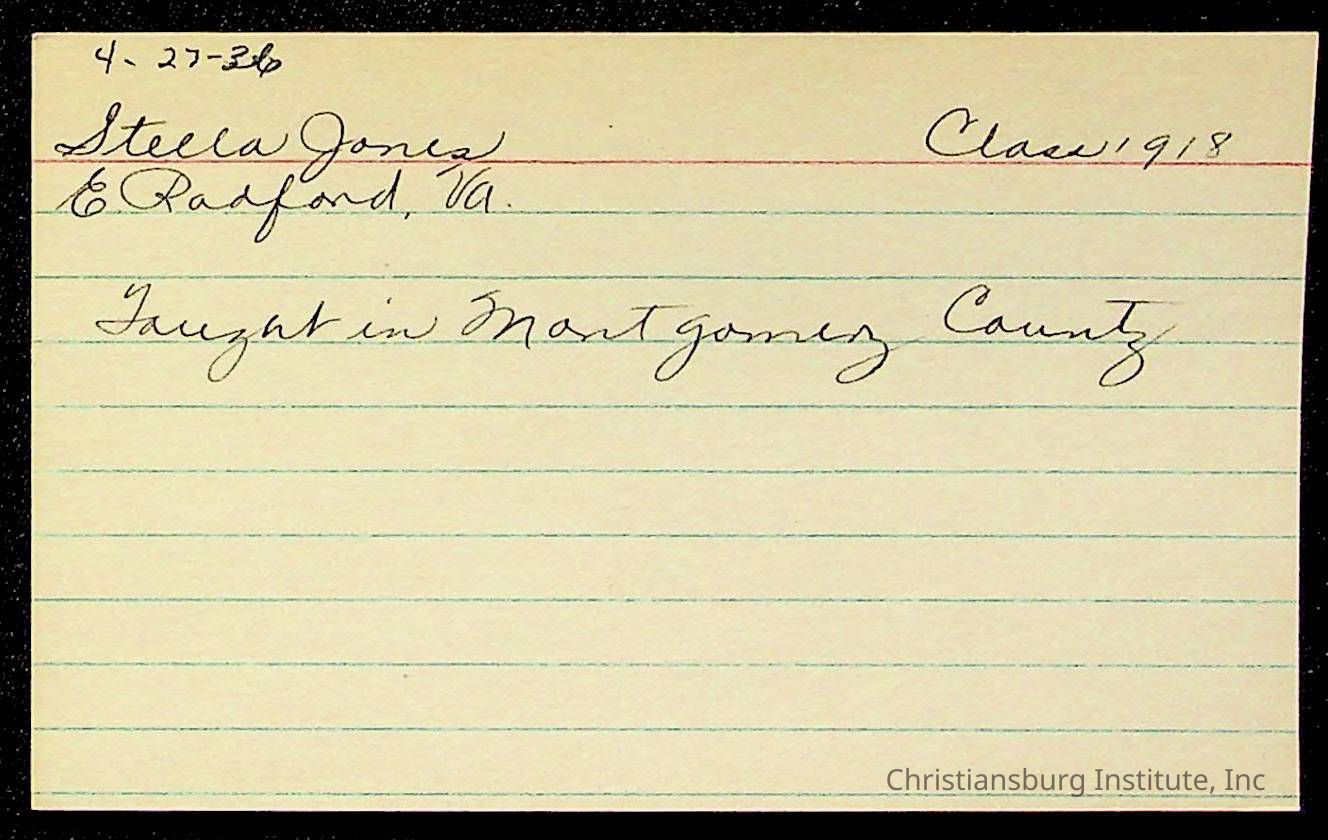 4-27-36
Stella Jones Class 1918
E Radford, Va.
Taught in Montgomery County
Christiansburg Institute, Inc